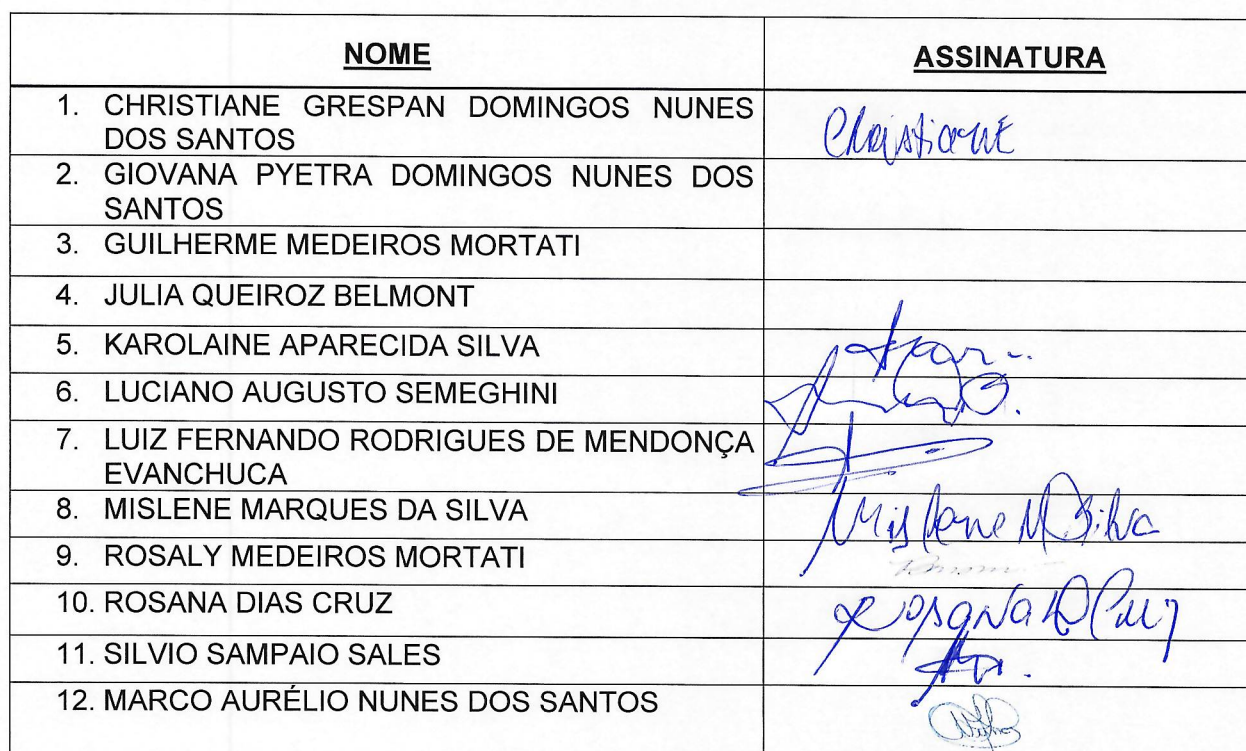 NOME ASSINATURA
1. CHRISTIANE GRESPAN DOMINGOS NUNES
DOS SANTOS
Christiane
2. GIOVANA PYETRA DOMINGOS NUNES DOS
SANTOS
3. GUILHERME MEDEIROS MORTATI
4. JULIA QUEIROZ BELMONT
5. KAROLAINE APARECIDA SILVA
6. LUCIANO AUGUSTO SEMEGHINI
7. LUIZ FERNANDO RODRIGUES DE MENDONÇA
EVANCHUCA
8. MISLENE MARQUES DA SILVA Mislene M Silva
9. ROSALY MEDEIROS MORTATI
10. ROSANA DIAS CRUZ Rosana D Cruz
11. SILVIO SAMPAIO SALES
12. MARCO AURÉLIO NUNES DOS SANTOS